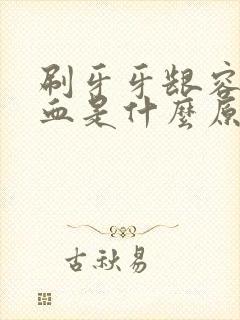 刷牙牙龈容
血是什麼原
古秋易